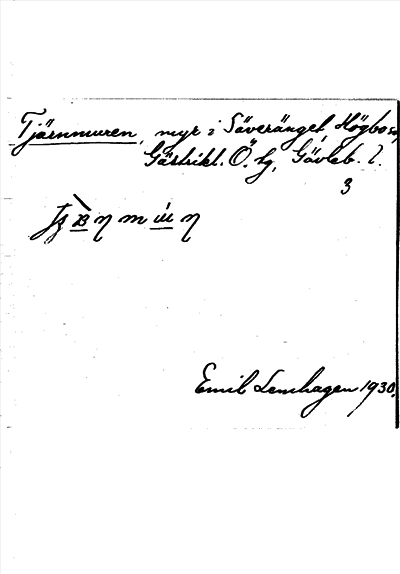 Tjärnmuren, myr i Säveränget, Högbo sn,
Gästrikl. Ö. tg, Gävleb. l.
3
Emil Lenhagen 1930.